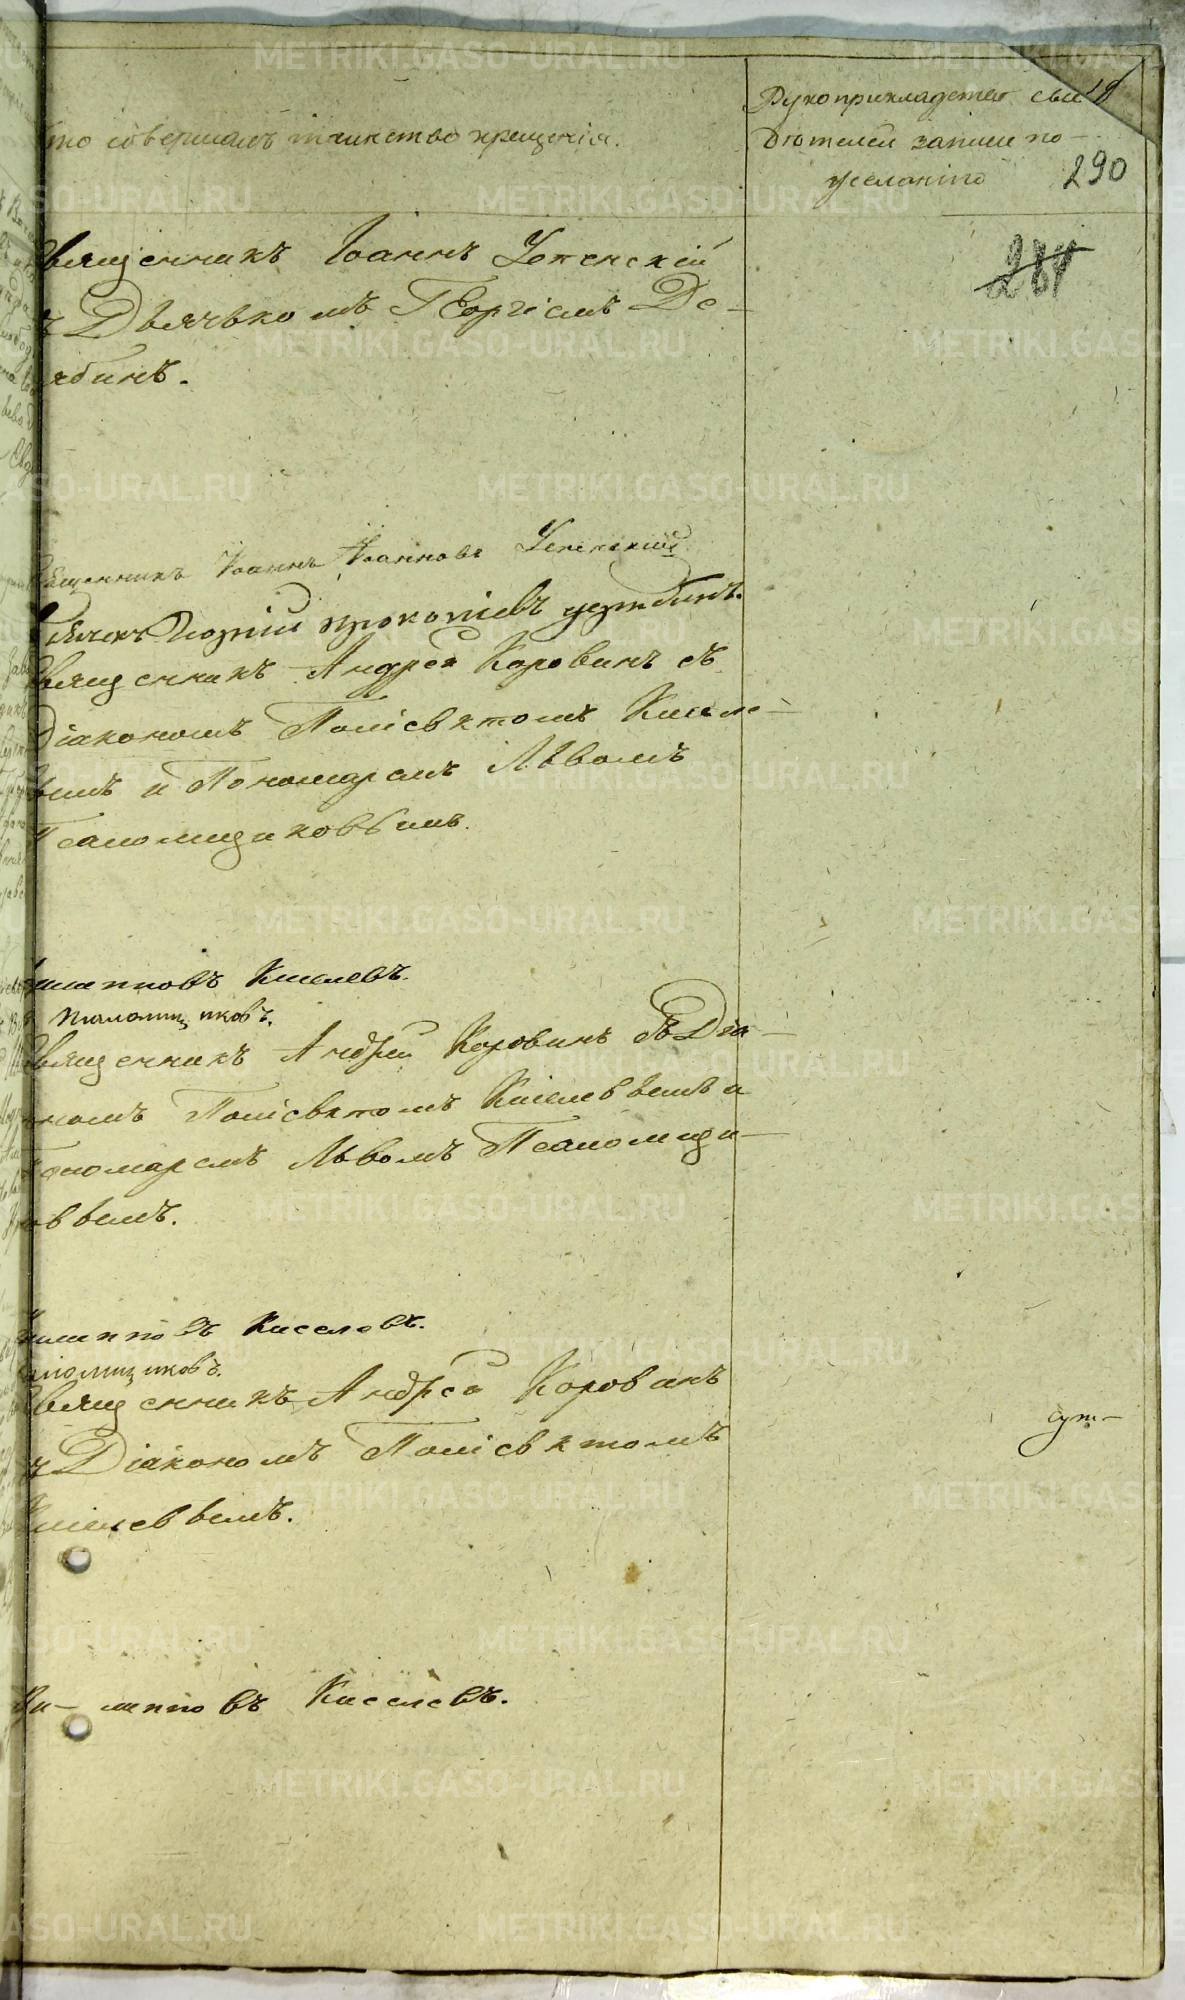 то совершалъ таинство крещенія.
Рукоприкладство сви
дѣтелей записи по
желанію
290
281
вященникъ Іоаннъ Успенскій
ъ Дьячькомъ Георгіемъ Де-
ябинъ.
вященникъ Іоаннъ Іоанновъ Успенскій
прокопіевъ
вященникъ Андрей Коровинъ съ
Діакономъ Поліевктомъ Кисиле-
вымъ и Пономаремъ Львомъ
Псаломщиковымъ.
илипповъ Киселевъ.
Псаломщиковъ.
вященникъ Андрей Коровинъ съ Діа-
ономъ Поліевктомъ Киселеввымъ и
ономаремъ Львомъ Псаломщи-
оввымъ.
илипповъ Киселевъ.
аломщиковъ.
вященникъ Андрей Коровинъ
ъ Діакономъ Поліевктомъ
иселеввымъ.
ли-липповъ Киселевъ.
METRIKI.GASO-URAL.RU